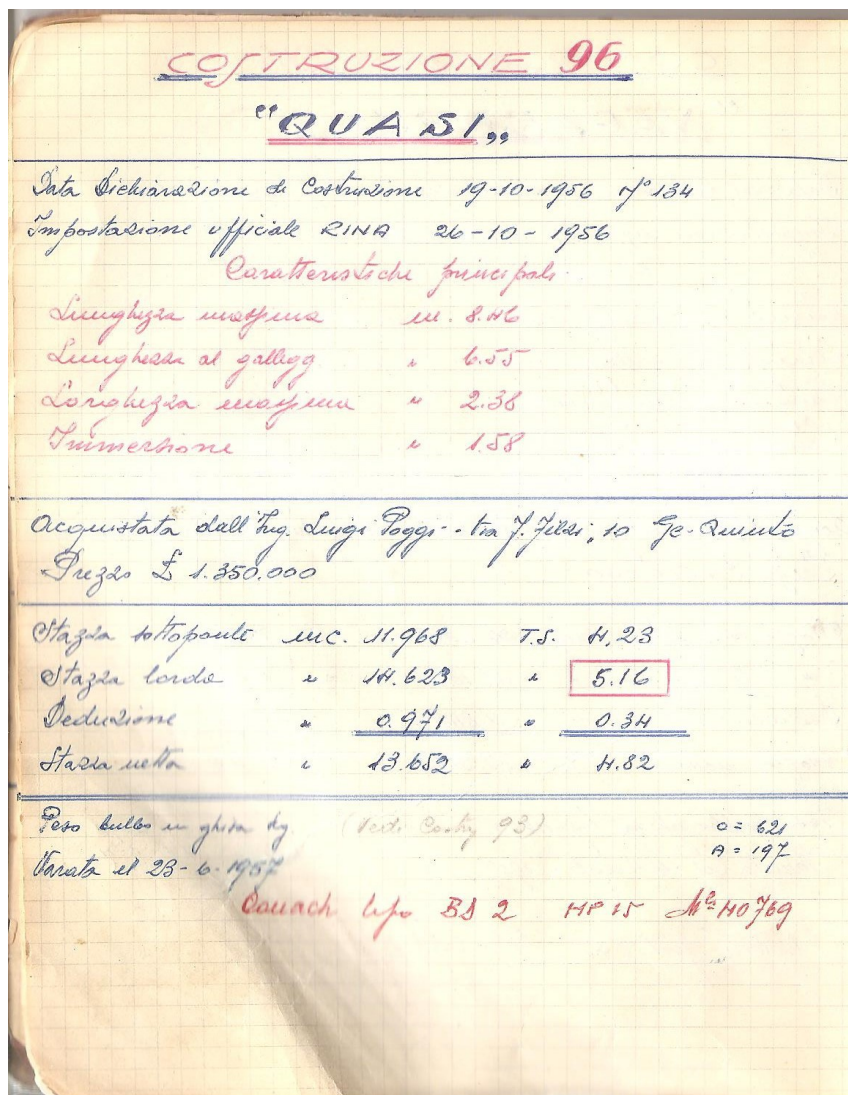 COSTRUZIONE 96
"QUASI„
Data Dichiarazione di Costruzione 19-10-1956 N° 134
Impostazione ufficiale RINA 26-10-1956
Caratteristiche principali
Lunghezza massima m. 8.46
Lunghezza al gallegg " 6.55
Larghezza massima " 2.38
Immersione " 1.58
Acquistata dall'Ing. Luigi Poggi - Via F. Filzi, 10 Ge-Quinto
Prezzo £ 1.350.000
Stazza sottoponte mc. 11.968 T.S. 4,23
Stazza lorda " 14.623 " 5.16
Deduzione " 0.971 " 0.34
Stazza netta " 13.652 " 4.82
Peso bulbo in ghisa kg (Vedi Costrz 93) O = 621
A = 197
Varata il 23-6-1957
Couach tipo BD 2 HP 15 N° 40769